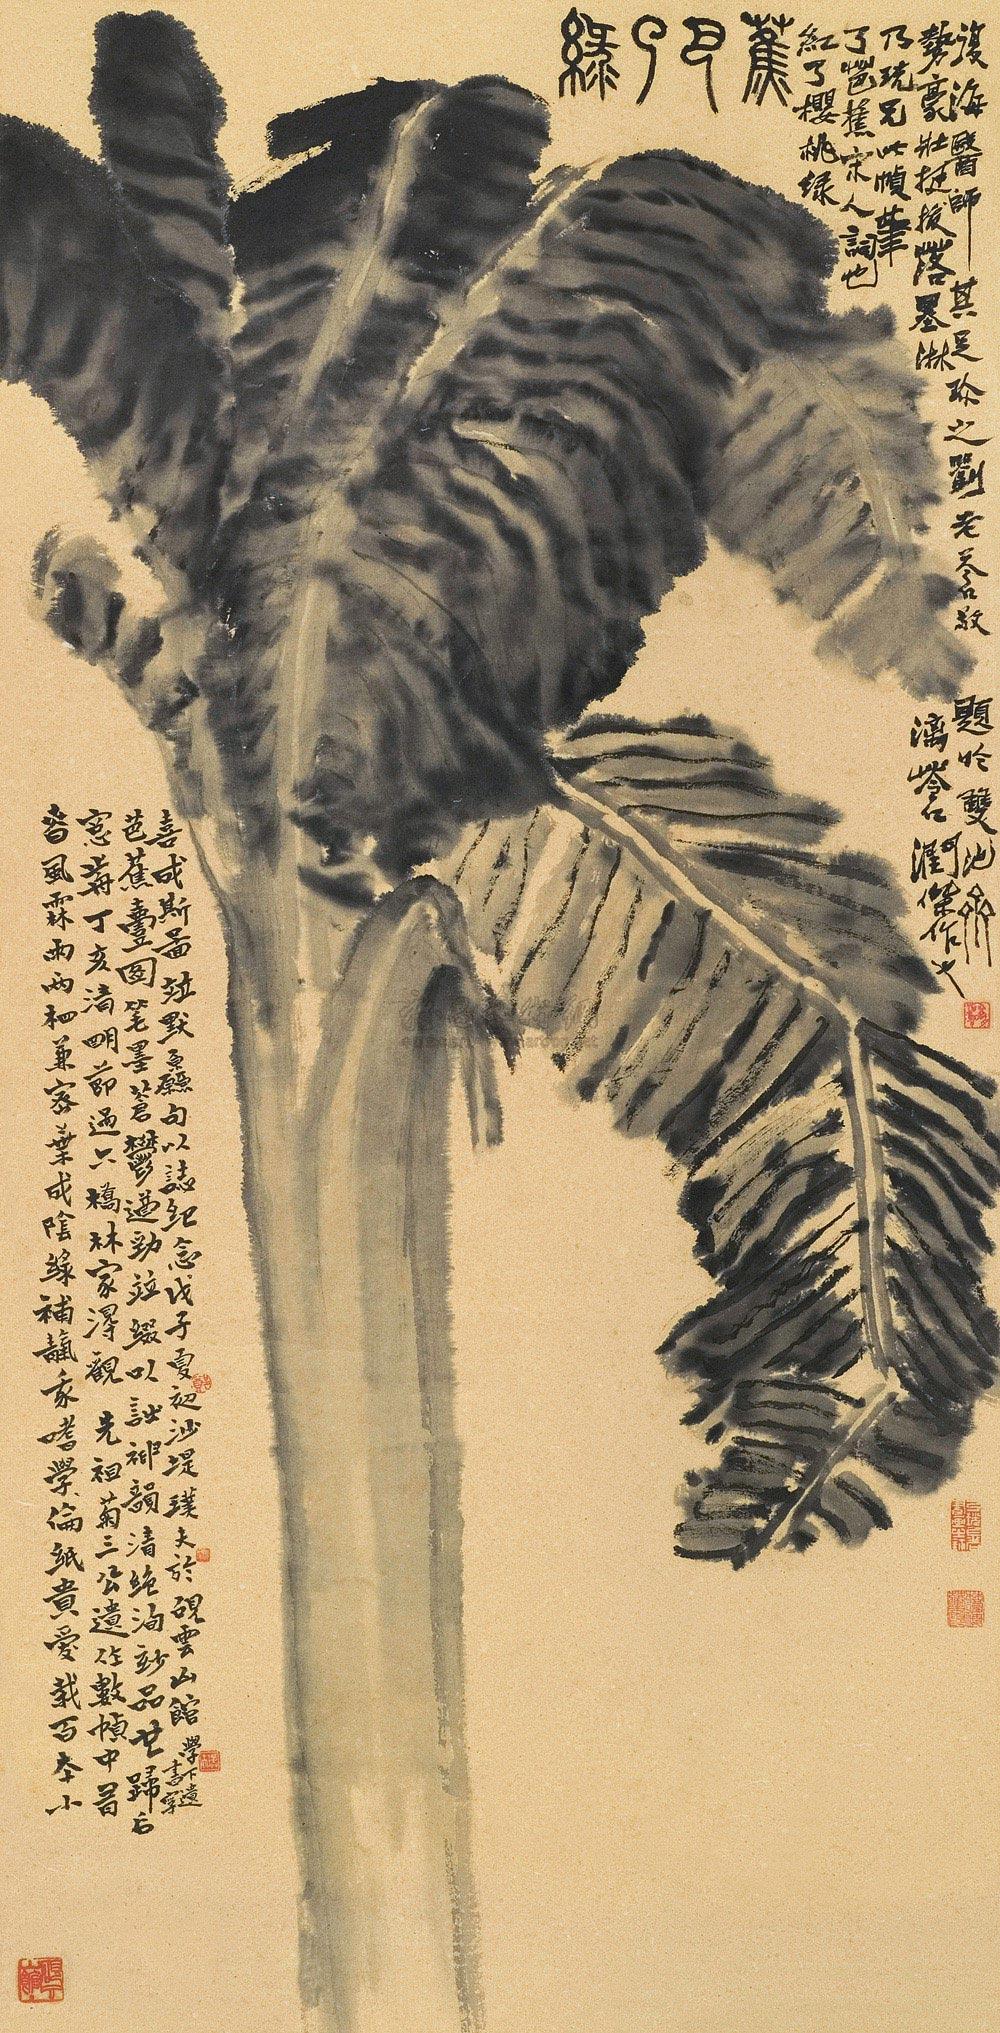 蕉
綠
紅了櫻桃綠
了芭蕉宋人詞也
乃琥兄此幀筆
勢豪壯挺拔落墨淋
漓蒼潤傑作也
復海醫師其足珍之劉老蒼敬
題於雙池齋
風霖雨兩相兼容葉成陰綠補我嗜學倫紙貴愛栽百本小
窗前丁亥清明節過六橋林家得觀先祖菊三公遺作數幀中首
芭蕉圖筆墨蒼鬱遒勁並綴以詩神韻清絕洵妙品也歸后
喜成斯圖並默原句以誌紀念戊子夏初沙堤璞夫於硯雲山館